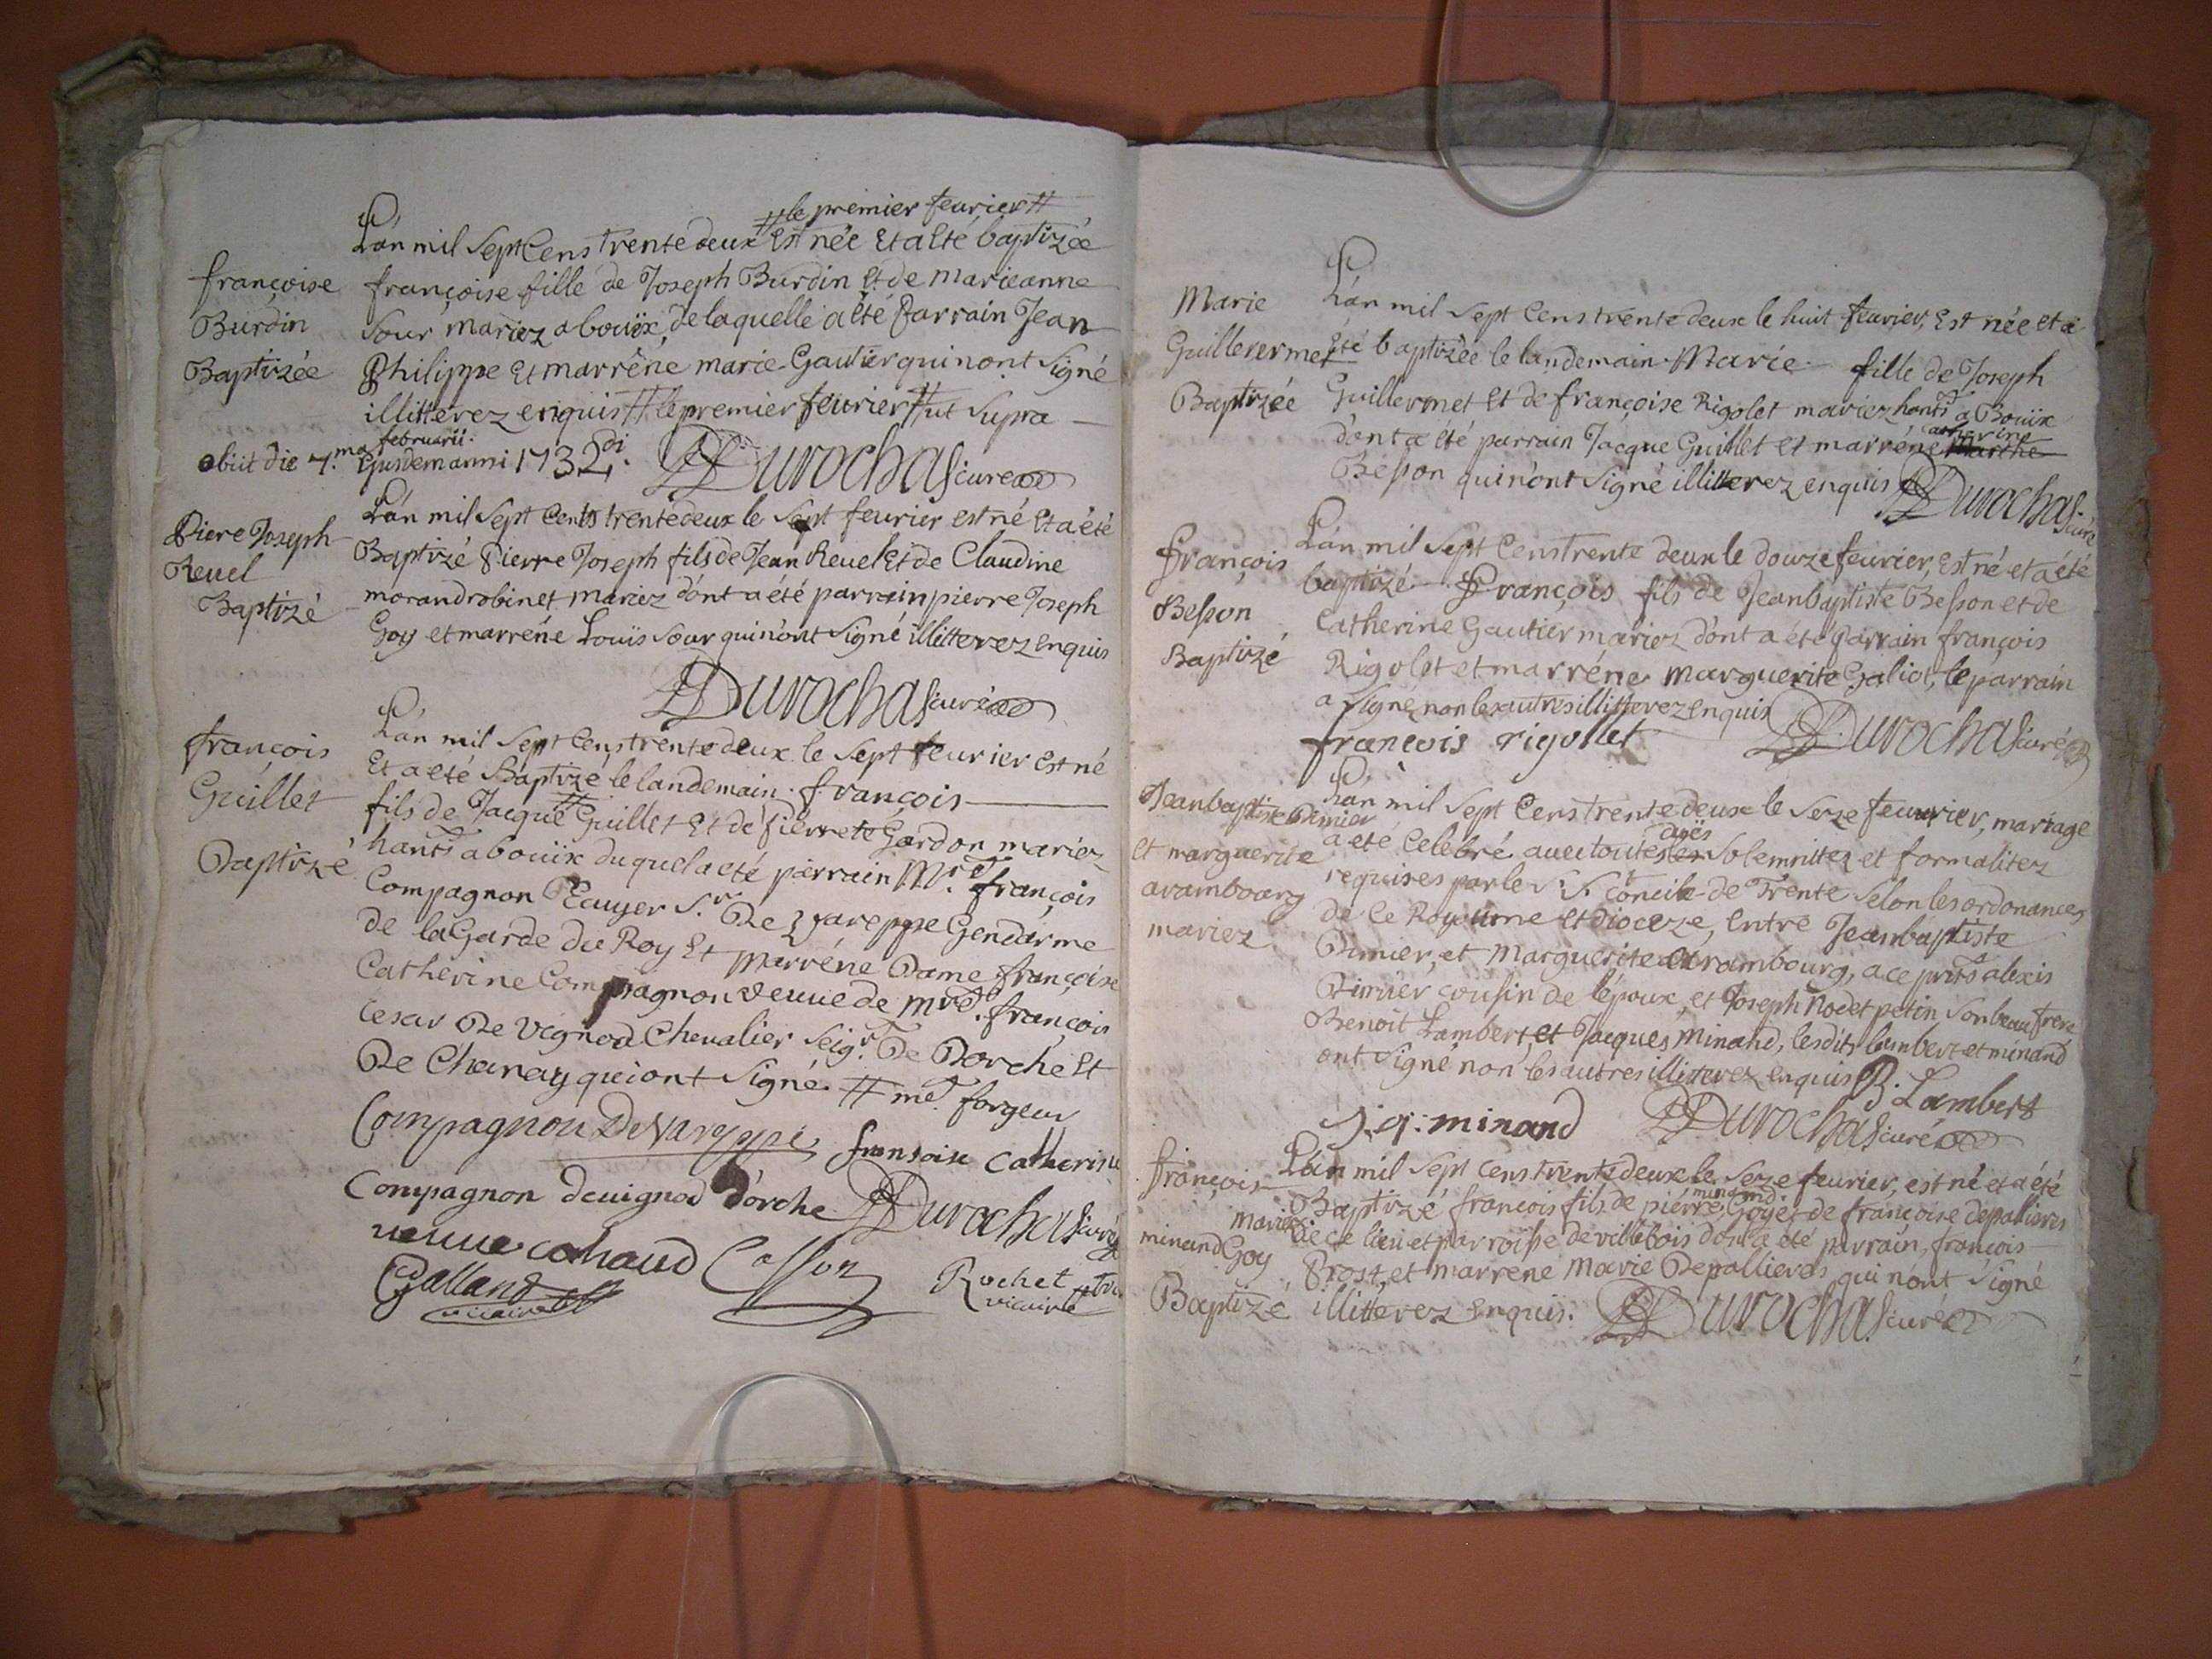 #le premier feurier#
L'an mil Sept Cens trente deux Est née Et a Eté baptizée
françoise
Burdin
Baptizée
françoise fille de Joseph Burdin Et de marieanne
Sour mariez a bouïx, de laquelle a été Parrain Jean
Philippe Et marréne marie Gautier qui n'ont Signé
illitterez enquis # le premier feurier # ut Supra
obiit die 7.ma februarii.
Ejusdem anni 1732. DDurochas curé
Piere Joseph
Reuel
Baptizé
L'an mil Sept Cents trente deux le Sept feurier est né Et a été
Baptizé Pierre Joseph fils de Jean Reuel Et de Claudine
morandrobinet mariez dont a été parrain pierre Joseph
Goy et marréne Louïs Sour qui n'ont Signé illitterez enquis
DDurochas curé
françois
Guillet
Baptizé
L'an mil Sept Cens trente deux le Sept feurier est né
Et a eté Baptizé le landemain. françois
fils de Jacque # Guillet Et de pierrete Gardon mariez
hants a bouïx duquel a eté parrain Mre françois
Compagnon Ecuyer Sr. De Vareppe Gendarme
de la Garde du Roy Et Marréne Dame françoise
Catherine Compagnon veuue de mre. françois
Cesar De Vignod Cheualier Seigr. De Dorche Et
De Chanay qui ont Signé. # me. forgeur
Compagnon De Vareppe fransoise Catherine
Compagnon deuignod d'orche DDurochas curé
veuue cohaud Casson
Galland
vicaire
Rochet ptre
vicaire
Marie
Guillerermet
Baptizée
L'an mil Sept Cens trente deux le huit feurier, Est née et a
Eté baptizée le landemain Marie fille de Joseph
Guillermet Et de françoise Rigolet mariez hants a Bouïx
dont a été parrain Jacque Guillet et marréne Marthe catherine
Besson qui n'ont Signé illitterez enquis DDurochas curé
françois
Besson
Baptizé
L'an mil Sept Cens trente deux le douze feurier, Est né et a été
baptizé François fils de Jeanbaptiste Besson et de
Catherine Gautier mariez dont a été parrain françois
Rigolet et marréne Marguerite Galiot, le parrain
a Signé, non les autres illitterez enquis
françois rigollet DDurochas curé
Jeanbaptiste Dimier
et marguerite
arambourg
mariez
L'an mil Sept Cens trente deux le Seze feurier, mariage
a eté Celebré auec toutes les Solemnittez et formalitez
requises par le S.t Concile de Trente Selon les ordonances
de ce Royaume et Dioceze, Entre Jeanbaptiste
Dimier, et Marguerite arambourg, a ce prnts alexis
Dimier cousin de l'époux, et Joseph Nodet petin Son beau frere
Benoit Lambert, et Jacques Minand, lesdits lambert et minand
ont Signé non les autres illitterez enquis B. Lambert
j.q: minand DDurochas curé
françois
minand Goy
Baptizé
L'an mil Sept Cens trente deux le Seze feurier, est né et a été
Baptizé françois fils de pierre minand Goy et de françoise depalieres
mariez de ce lieu et parroisse de villebois dont a été parrain, françois
Prost, et marrene Marie Depallieres qui n'ont Signé
illitterez enquis. DDurochas curé